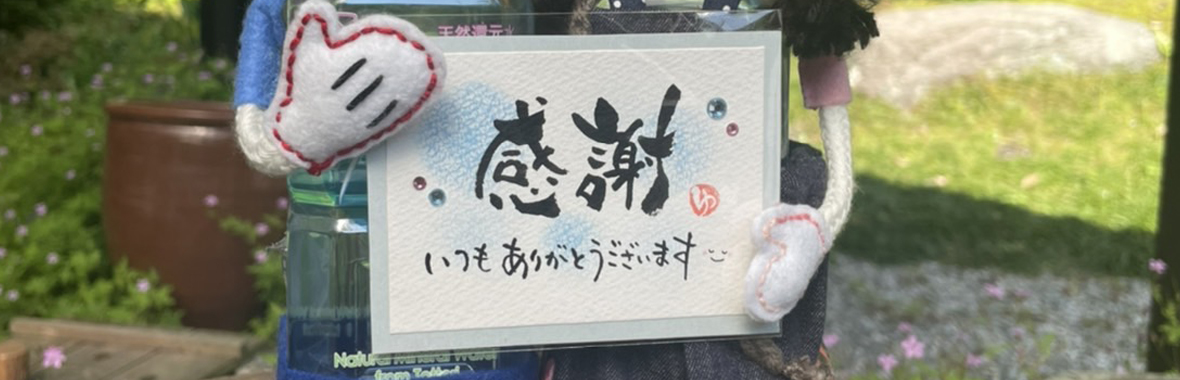 天然還元
感謝
ゆ
いつも ありがとうございます
Natural Mineral Water
from Tottori